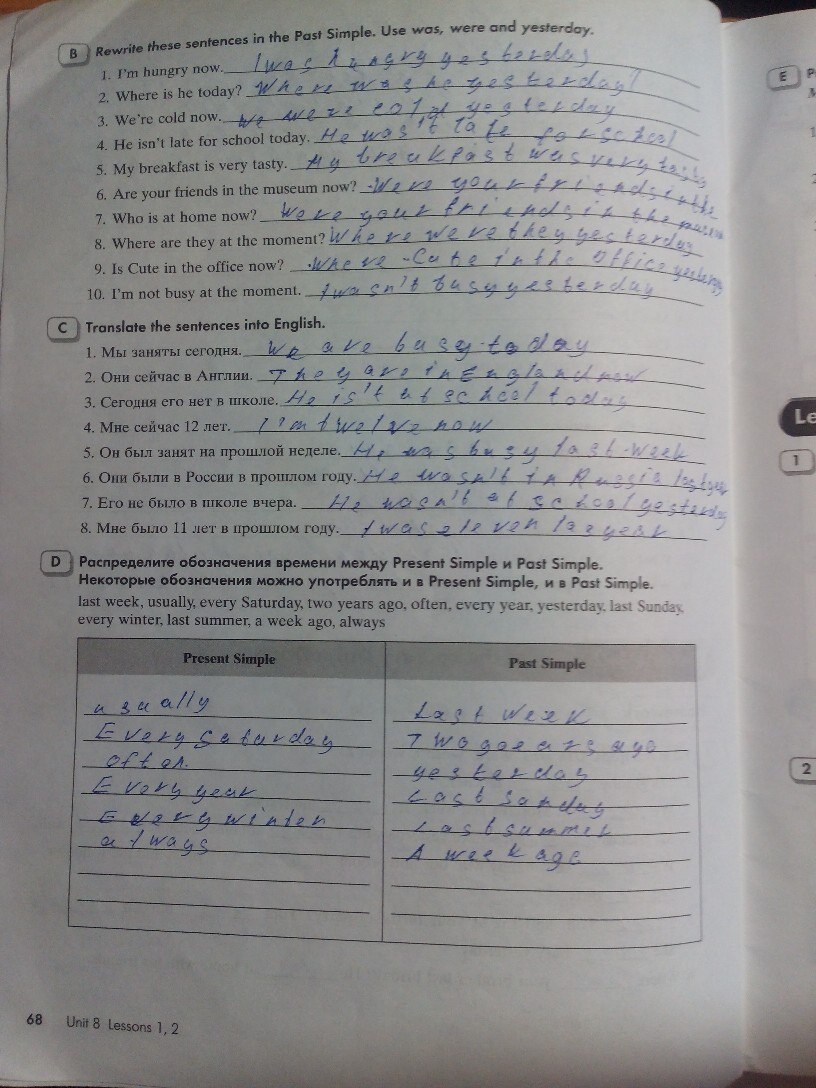 B Rewrite these sentences in the Past Simple. Use was, were and yesterday.
1. I'm hungry now. I was hungry yesterday
2. Where is he today? Where was he yesterday?
3. We're cold now. we were cold yesterday
4. He isn't late for school today. He was't late for school
5. My breakfast is very tasty. My breakfast was very tasty
6. Are your friends in the museum now? Were your friends in the
7. Who is at home now? Were your friends in the museum
8. Where are they at the moment? Where were they yesterday
9. Is Cute in the office now? Where Cute in the office yesterday
10. I'm not busy at the moment. I wasn't busy yesterday
C Translate the sentences into English.
1. Мы заняты сегодня. We are busy today
2. Они сейчас в Англии. They are in England now
3. Сегодня его нет в школе. He is't at school today
4. Мне сейчас 12 лет. I'm twelve now
5. Он был занят на прошлой неделе. He was busy last week
6. Они были в России в прошлом году. He wasn't in Russia last year
7. Его не было в школе вчера. He wasn't at school yesterday
8. Мне было 11 лет в прошлом году. I was eleven las year
D Распределите обозначения времени между Present Simple и Past Simple.
Некоторые обозначения можно употреблять и в Present Simple, и в Past Simple.
last week, usually, every Saturday, two years ago, often, every year, yesterday, last Sunday,
every winter, last summer, a week ago, always
Present Simple
usually
Every saturday
often.
Every year
Every winter
always
Past Simple
Last week
Two years ago
yesterday
Last sanday
Last summer
A week ago
68 Unit 8 Lessons 1, 2
E
Le
1
2